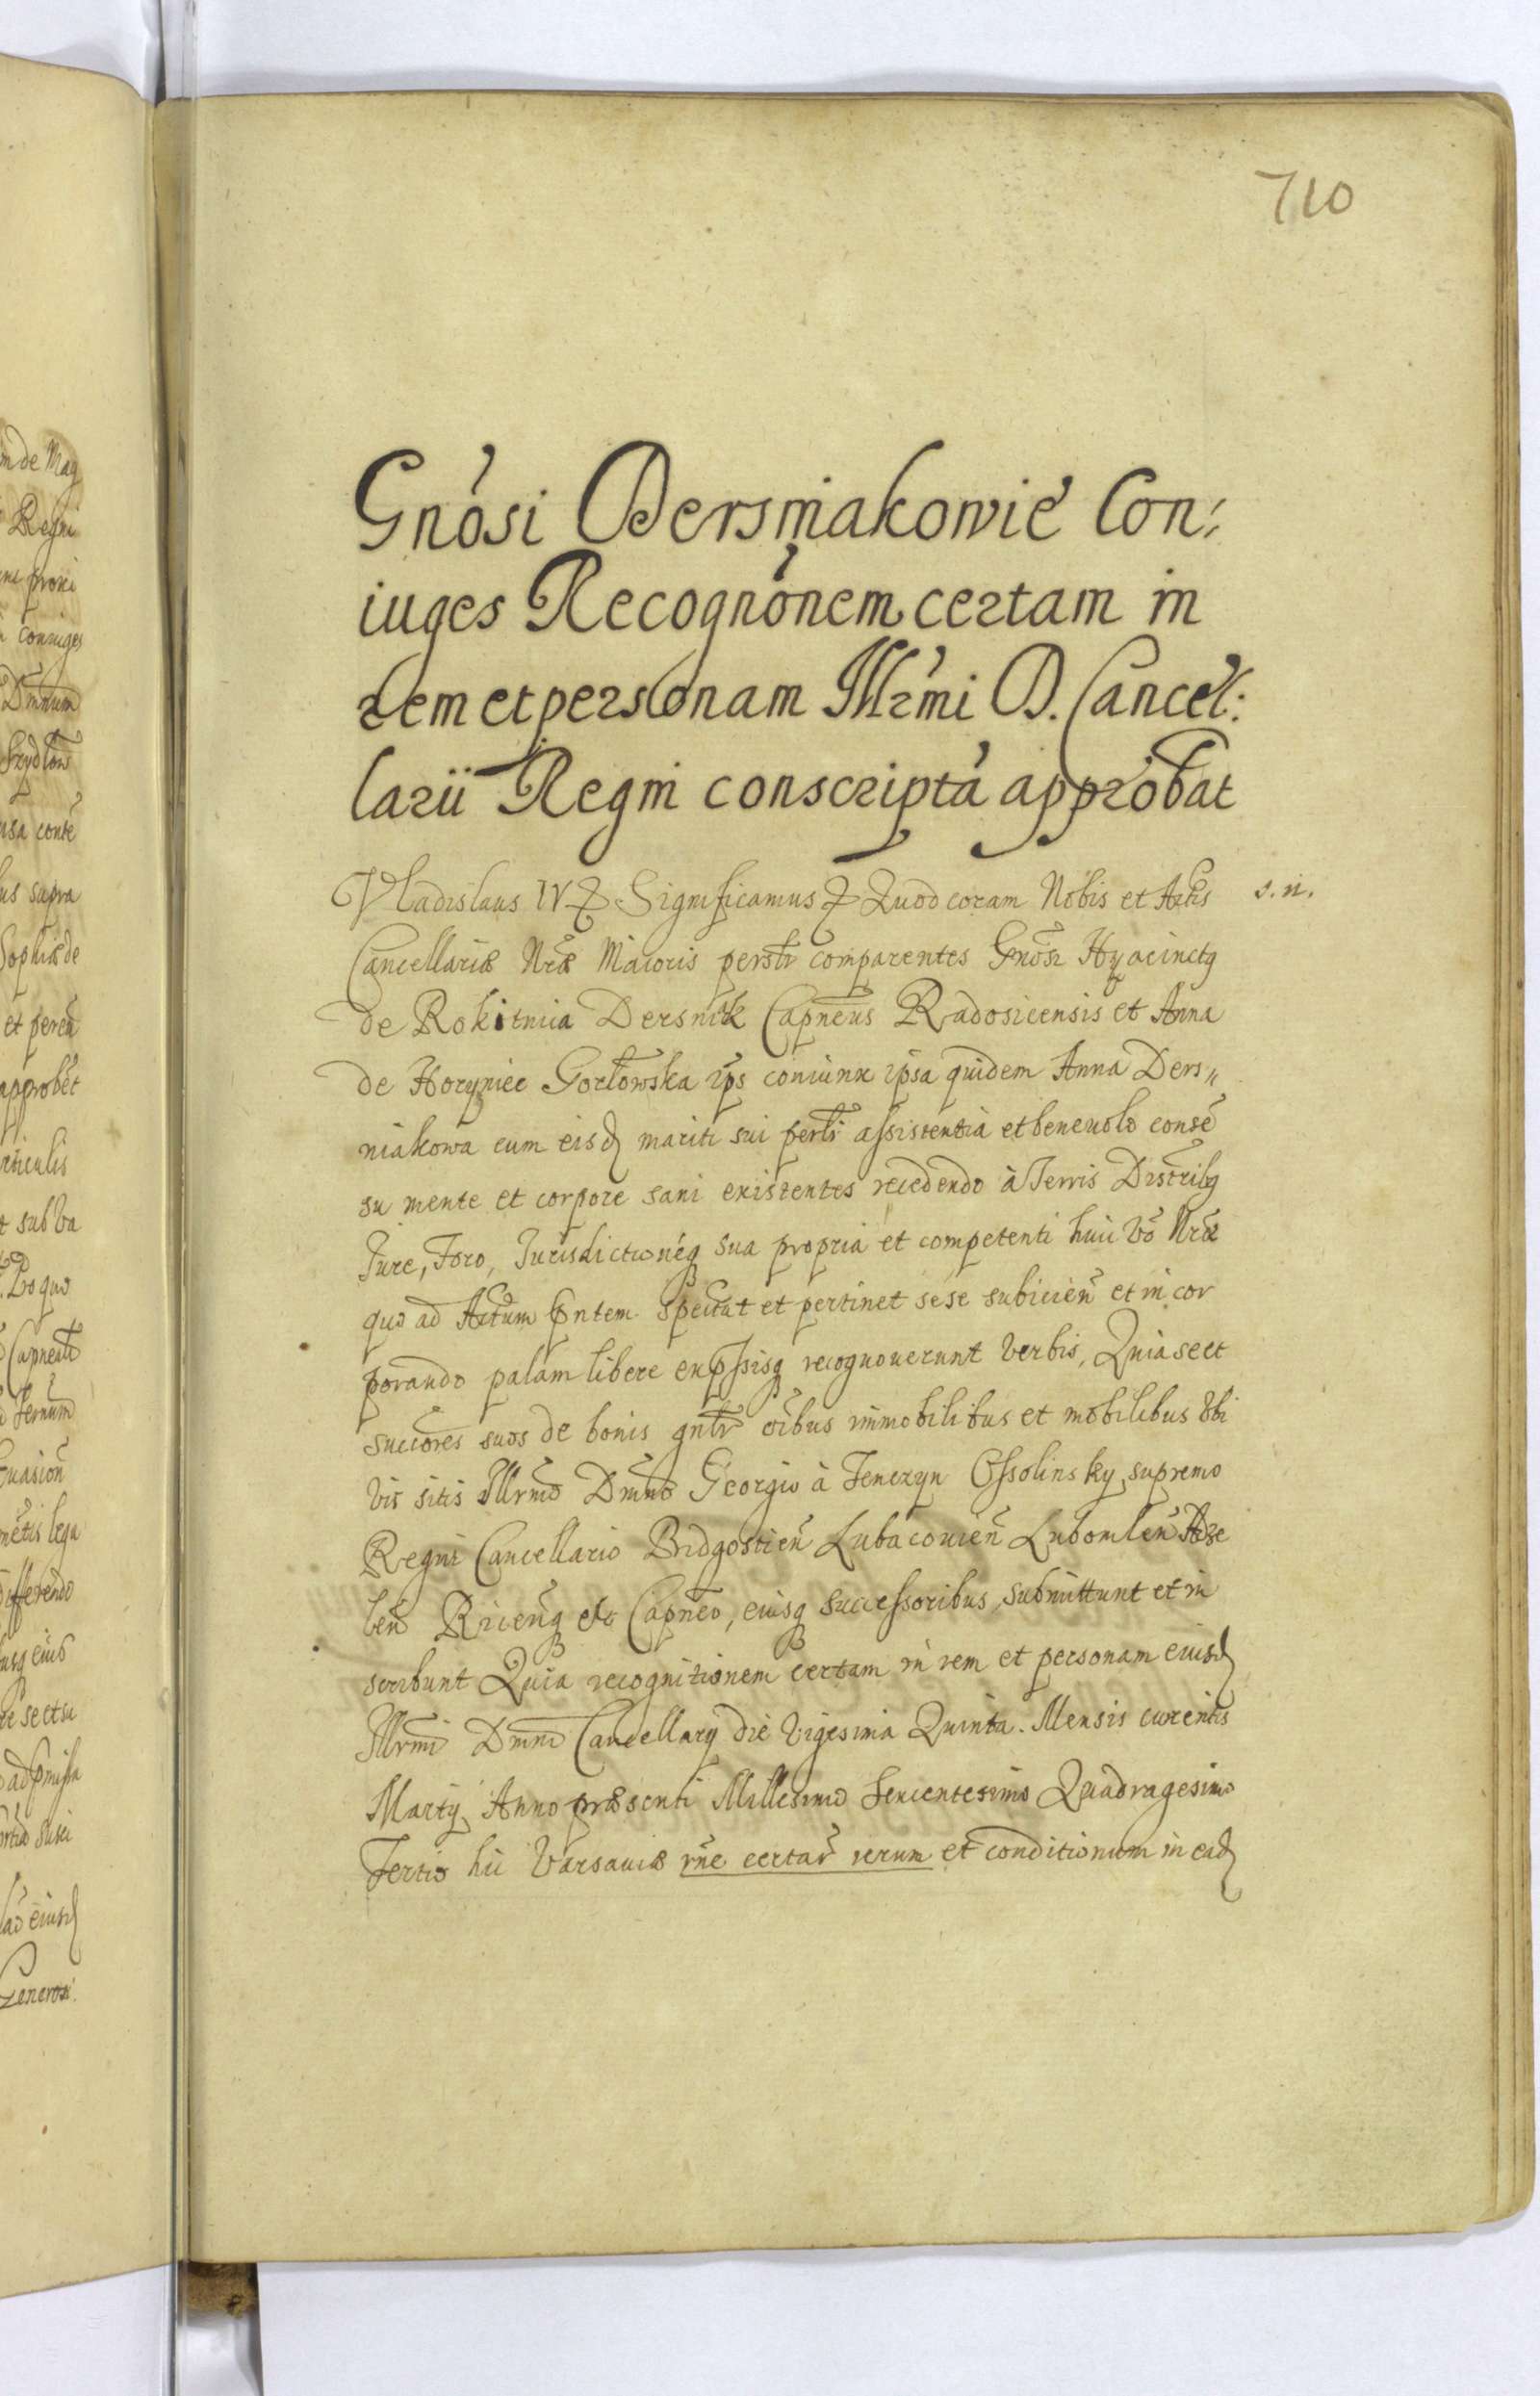 710
Gnosi Dersniakowie Con:
iuges Recognonem certam in
rem et personam Illrmi D. Cancel:
larii Regni conscripta approbat
Vladislaus IV Significamus Quod coram Nobis et Actis s. n.
Cancellariæ Nræ Maioris personlr comparentes Gnosi Hyacinctq
de Rokitnica Dersniak Capneus Radosicensis et Anna
de Horyniec Gorłowska ips coniunx ipsa quidem Anna Ders„
niakowa cum eisd mariti sui perlri assistentia et beneuolo conse
su mente et corpore sani existentes recedendo à Terris Districtibq
Iure, Foro, Iurisdictioneq sua propria et competenti huic vo Nræ
quo ad Actum pntem spectat et pertinet sese subicien et incor
porando palam libere expssisq recognouerunt verbis, Quia se et
succores suos de bonis gnlr oibus immobilibus et mobilibus vbi
vis sitis Illrmo Dmno Georgio à Tenczyn Ossolinsky supremo
Regni Cancellario Bidgostien Lubacouien Lubomlen Aze
len Ricenq etc Capneo, eiusq successoribus submittunt et in
scribunt Quia recognitionem certam in rem et personam eiusd
Illrmi Dmni Cancellarij die Vigesima Quinta Mensis curentis
Martij Anno præsenti Millesimo Sexcentesimo Quadragesimo
Tertio hic Varsauiæ rne certar rerum et conditionum in ead
in de Mag
Regni
coniuges
Dmnum
usa conte
us supra
Sophia de
approbet
articulis
t sub va
quo
uasion
lega
differendo
usq eius
re se et su
eiusd
Generosi